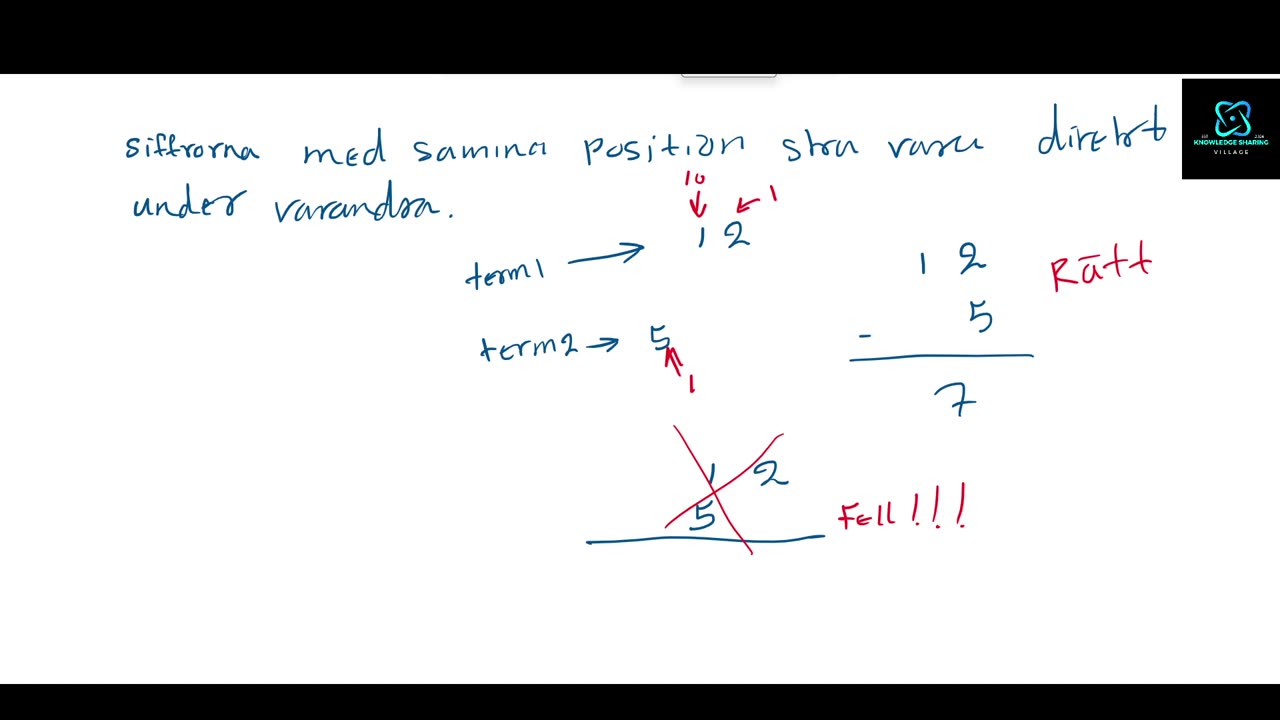 siffrorna med samma position ska vara direkt
under varandra.
10
1
term1 → 1 2
term2 → 5
1
1 2
- 5
7
Rätt
1 2
5
Fell!!!
KNOWLEDGE SHARING
VILLAGE